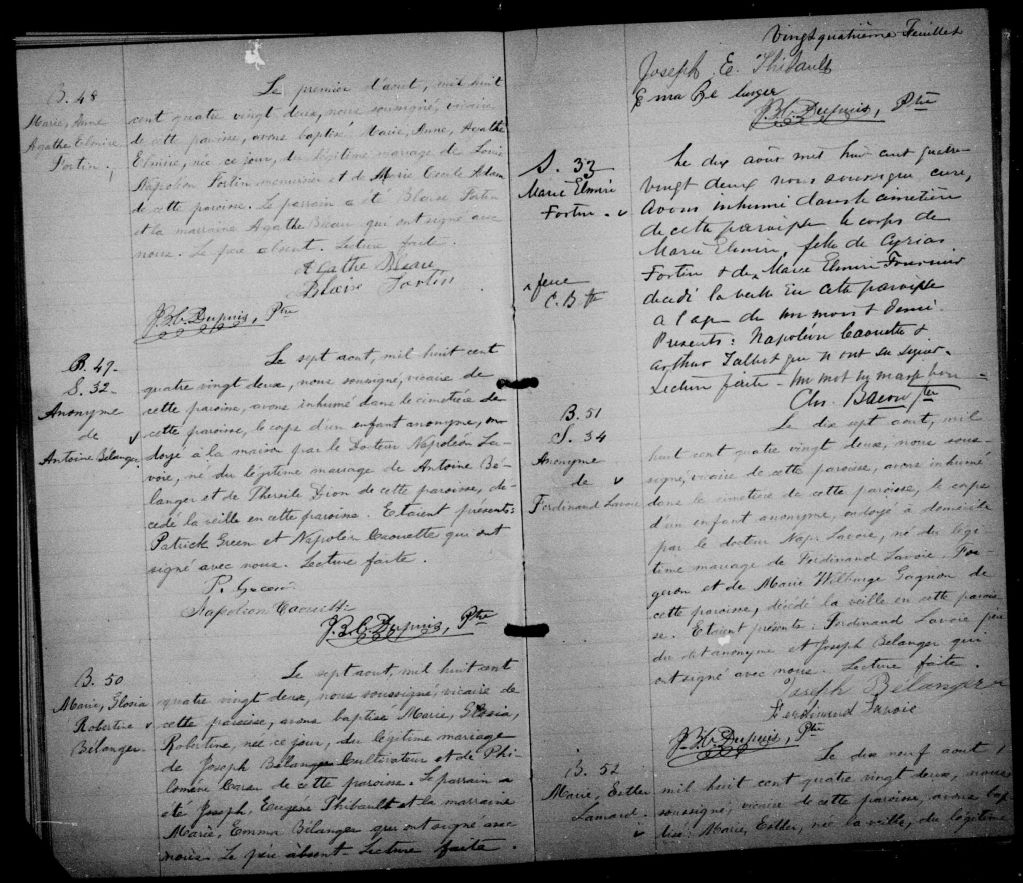 B. 48
Marie, Anne
Agathe Elmire
Fortin
Le premier d'aout, mil huit
cent quatre vingt deux, nous soussigné, vicaire
de cette paroisse, avons baptisé Marie, Anne, Agathe
Elmire, née ce jour, du légitime mariage de Louis
Napoléon Fortin menuisier et de Marie Adam
de cette paroisse. Le parrain a été Blaise Fortin
et la marraine Agathe Bleau qui ont signé avec
nous. Le père absent. Lecture faite.
Agathe Bleau
Blaise Fortin
J.B.C. Dupuis, Ptre
B. 49-
S. 32-
Anonyme
de
Antoine Bélanger
Le sept aout, mil huit cent
quatre vingt deux, nous soussigné, vicaire de
cette paroisse, avons inhumé dans le cimetière de
cette paroisse, le corps d'un enfant anonyme, on-
doyé à la maison par le Docteur Napoléon La-
voie, né du légitime mariage de Antoine Bé-
langer et de Thersile Dion de cette paroisse, dé-
cédé la veille en cette paroisse. Etaient présents:
Patrick Green et Napoléon Caouette qui ont
signé avec nous. Lecture faite.
P. Green
Napoleon Caouette
J.B.C. Dupuis, Ptre
B. 50
Marie, Gloria
Robertine
Bélanger
Le sept aout, mil huit cent
quatre vingt deux, nous soussigné, vicaire de
cette paroisse, avons baptisé Marie, Gloria,
Robertine, née ce jour, du légitime mariage
de Joseph Bélanger Cultivateur et de Phi-
lomène Caron de cette paroisse. Le parrain a
été Joseph, Eugène Thibault et la marraine
Marie, Emma Bélanger qui ont signé avec
nous. Le père absent- Lecture faite.
Vingt quatrième Feuillet
Joseph E. Thibault
Ema Belanger
J.B.C. Dupuis, Ptre
S. 33
Marie Elmire
Fortin
feue
C. B ptre
Le dix août mil huit cent quatre
vingt deux nous soussigné curé,
avons inhumé dans le cimetière
de cette paroisse le corps de
Marie Elmire, fille de Cyrias
Fortin & de Marie Elmire Fournier
décédé la veille en cette paroisse
a l'age de un mois & demi.
Présents: Napoléon Caouette &
Arthur Talbot qui n'ont su signer.
Lecture faite - un mot en marge bon -
Chs. Bacon Ptre
B. 51
S. 34
Anonyme
de
Ferdinand Lavoie
Le dix sept aout, mil
huit cent quatre vingt deux, nous sous-
signé, vicaire de cette paroisse, avons inhumé
dans le cimetière de cette paroisse, le corps
d'un enfant anonyme, ondoyé à domicile
par le docteur Nap. Lavoie, né du légi-
time mariage de Ferdinand Lavoie, For-
geron et de Marie Wilburge Gagnon de
cette paroisse, décédé la veille en cette parois-
se. Etaient présents: Ferdinand Lavoie père
du dit anonyme et Joseph Bélanger qui
ont signé avec nous. Lecture faite.
Joseph Bélanger
Ferdinand Lavoie
J.B.C. Dupuis, Ptre
B. 52
Marie, Esther
Lamard
Le dix neuf aout
mil huit cent quatre vingt deux, nous
soussigné, vicaire de cette paroisse, avons bap-
tisé Marie, Esther, née la veille, du légitime